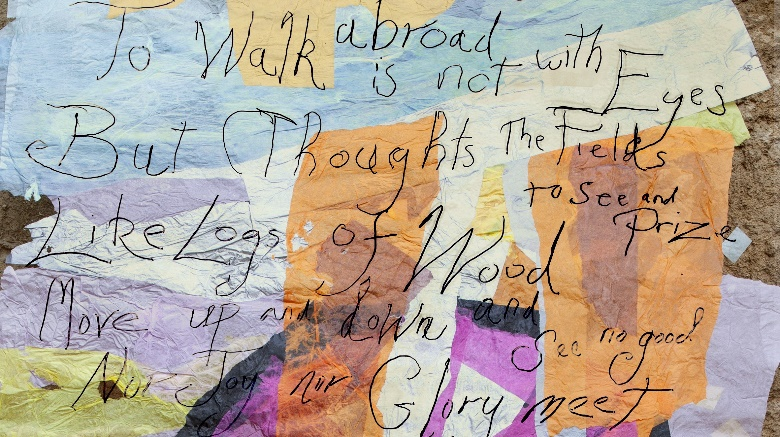 To Walk abroad is not with Eyes
But Thoughts The Fields to see and Prize
Like Logs of Wood
Move up and down and see no good
Nor Joy nor Glory meet